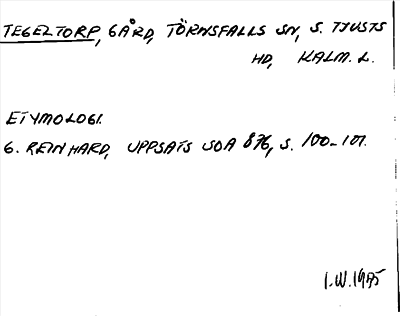 TEGELTORP, GÅRD, TÖRNSFALLS SN, S. TJUSTS
HD, KALM. L.
ETYMOLOGI.
G. REINHARD, UPPSATS UOA 876, S. 100-101.
I.W. 1975